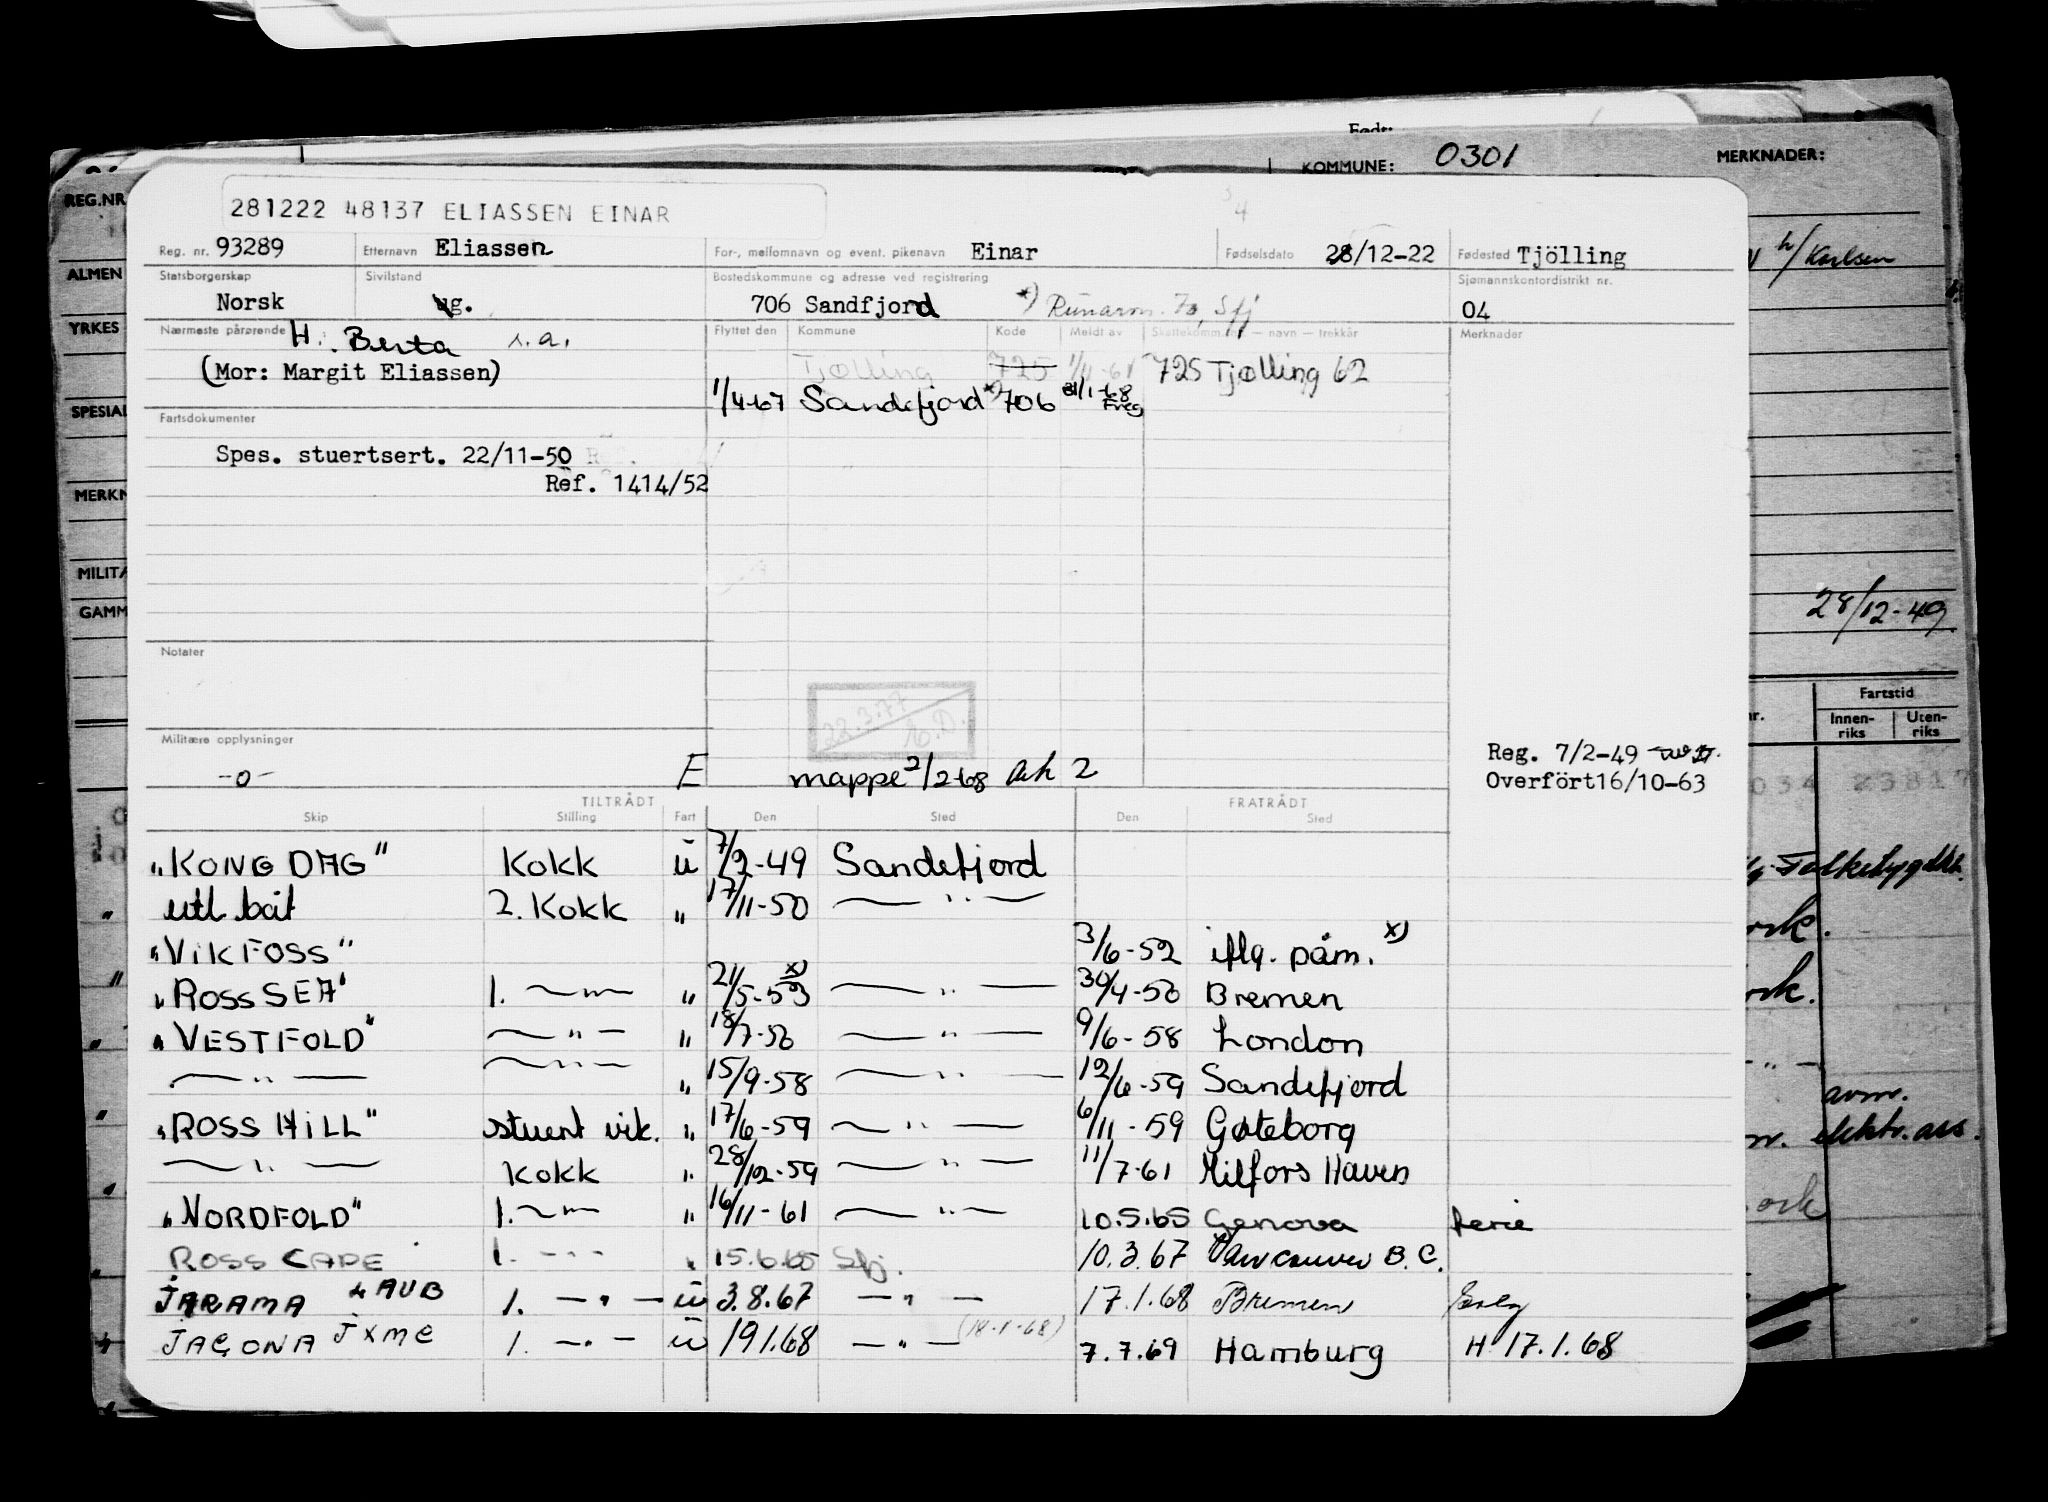 Født:
KOMMUNE: 0301 MERKNADER:
REG.NR
281222 48137 ELIASSEN EINAR
Reg. nr. 93289 Etternavn Eliassen For-, mellomnavn og event. pikenavn Einar Fødselsdato 28/12-22 Fødested Tjölling
h/Karlsen
ALMEN
Statsborgerskap Sivilstand Bostedskommune og adresse ved registrering Sjømannskontordistrikt nr.
Norsk ug. 706 Sandfjord *) Runarv. 70, Sfj 04
YRKES
Nærmeste pårørende H. Berta s.a. Flyttet den Kommune Kode Meldt av Skattekomm. — navn — trekkår Merknader
(Mor: Margit Eliassen) Tjølling 725 1/4-61 725 Tjølling 62
1/4-67 Sandefjord *) 706 31/1-68 Freg
SPESIAL
Fartsdokumenter
Spes. stuertsert. 22/11-50 Ref.
Ref. 1414/52
MERKN
MILIT
GAMM
28/12-49
Notater
22.3.77
Fartstid
nr. Innen-riks Uten-riks
Militære opplysninger
-o- E mappe 2/2-68 Ark 2
Reg. 7/2-49
Overfört16/10-63
TILTRÅDT FRATRÅDT
Skip Stilling Fart Den Sted Den Sted
"KONG DAG" Kokk u 7/2-49 Sandefjord
utl. båt 2. Kokk " 17/11-50 — " —
"VIKFOSS" 3/6-52 iflg. påm. x)
"ROSS SEA" 1. — " — " 21/5-53 x) — " — 30/4-56 Bremen
"VESTFOLD" — " — " 18/7-56 — " — 9/6-58 London
— " — — " — " 15/9-58 — " — 12/6-59 Sandefjord
"ROSS HILL" stuert vik. " 17/6-59 — " — 6/11-59 Gøteborg
— " — Kokk " 28/12-59 — " — 11/7-61 Milfors Haven
"NORDFOLD" 1. — " — " 16/11-61 — " — 10.5.65 Genova ferie
ROSS CAPE 1. - - - " 15.6.65 Sfj. 10.3.67 Vancouver B.C.
JARAMA LAUB 1. — " — u 3.8.67 — " — 17.1.68 Bremen
JACONA JXMC 1. — " — u 19.1.68 — " — (18-1-68) 7.7.69 Hamburg H 17.1.68
avm.
elektr. ass.